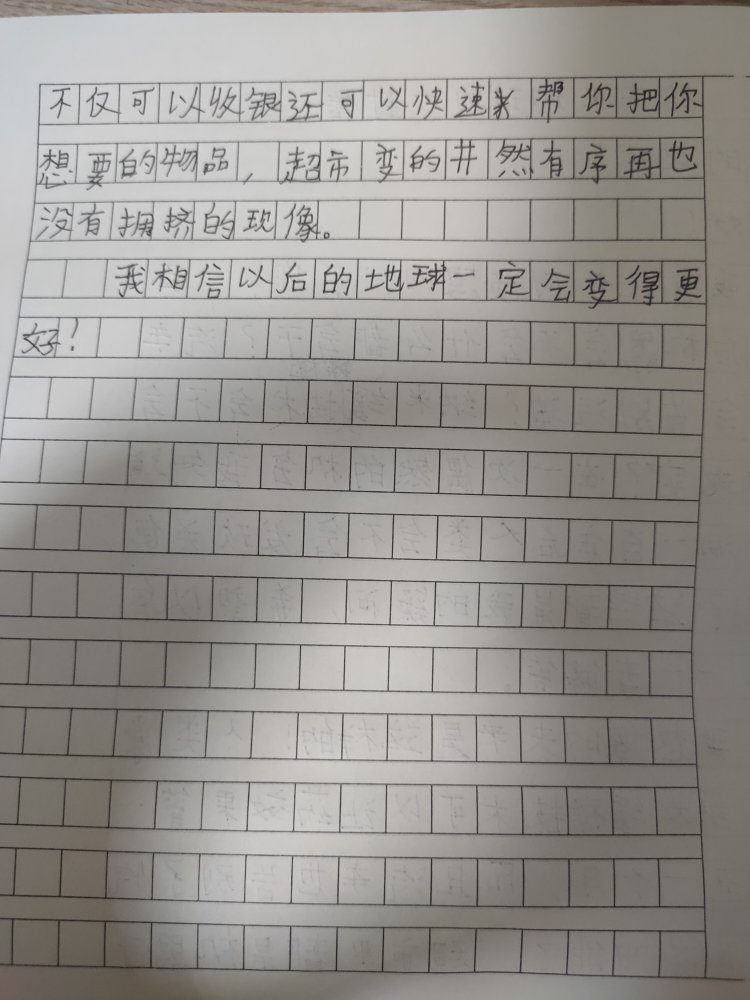 不仅可以收银还可以快速帮你把你
想要的物品，超市变的井然有序再也
没有拥挤的现像。
我相信以后的地球一定会变得更
好！